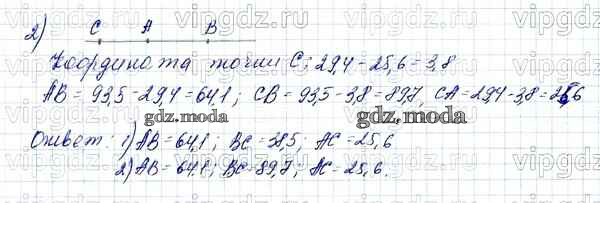 vipgdz.ru vipgdz.ru vipgdz.ru vipgdz.ru
2) C A B
Координата точки C: 29,4 - 25,6 = 3,8
AB = 93,5 - 29,4 = 64,1; CB = 93,5 - 3,8 = 89,7, CA = 29,4 - 3,8 = 25,6
gdz.moda gdz.moda
Ответ: 1) AB = 64,1; BC = 38,5; AC = 25,6
2) AB = 64,1; BC = 89,7; AC = 25,6.
vipgdz.ru vipgdz.ru vipgdz.ru vipgdz.ru